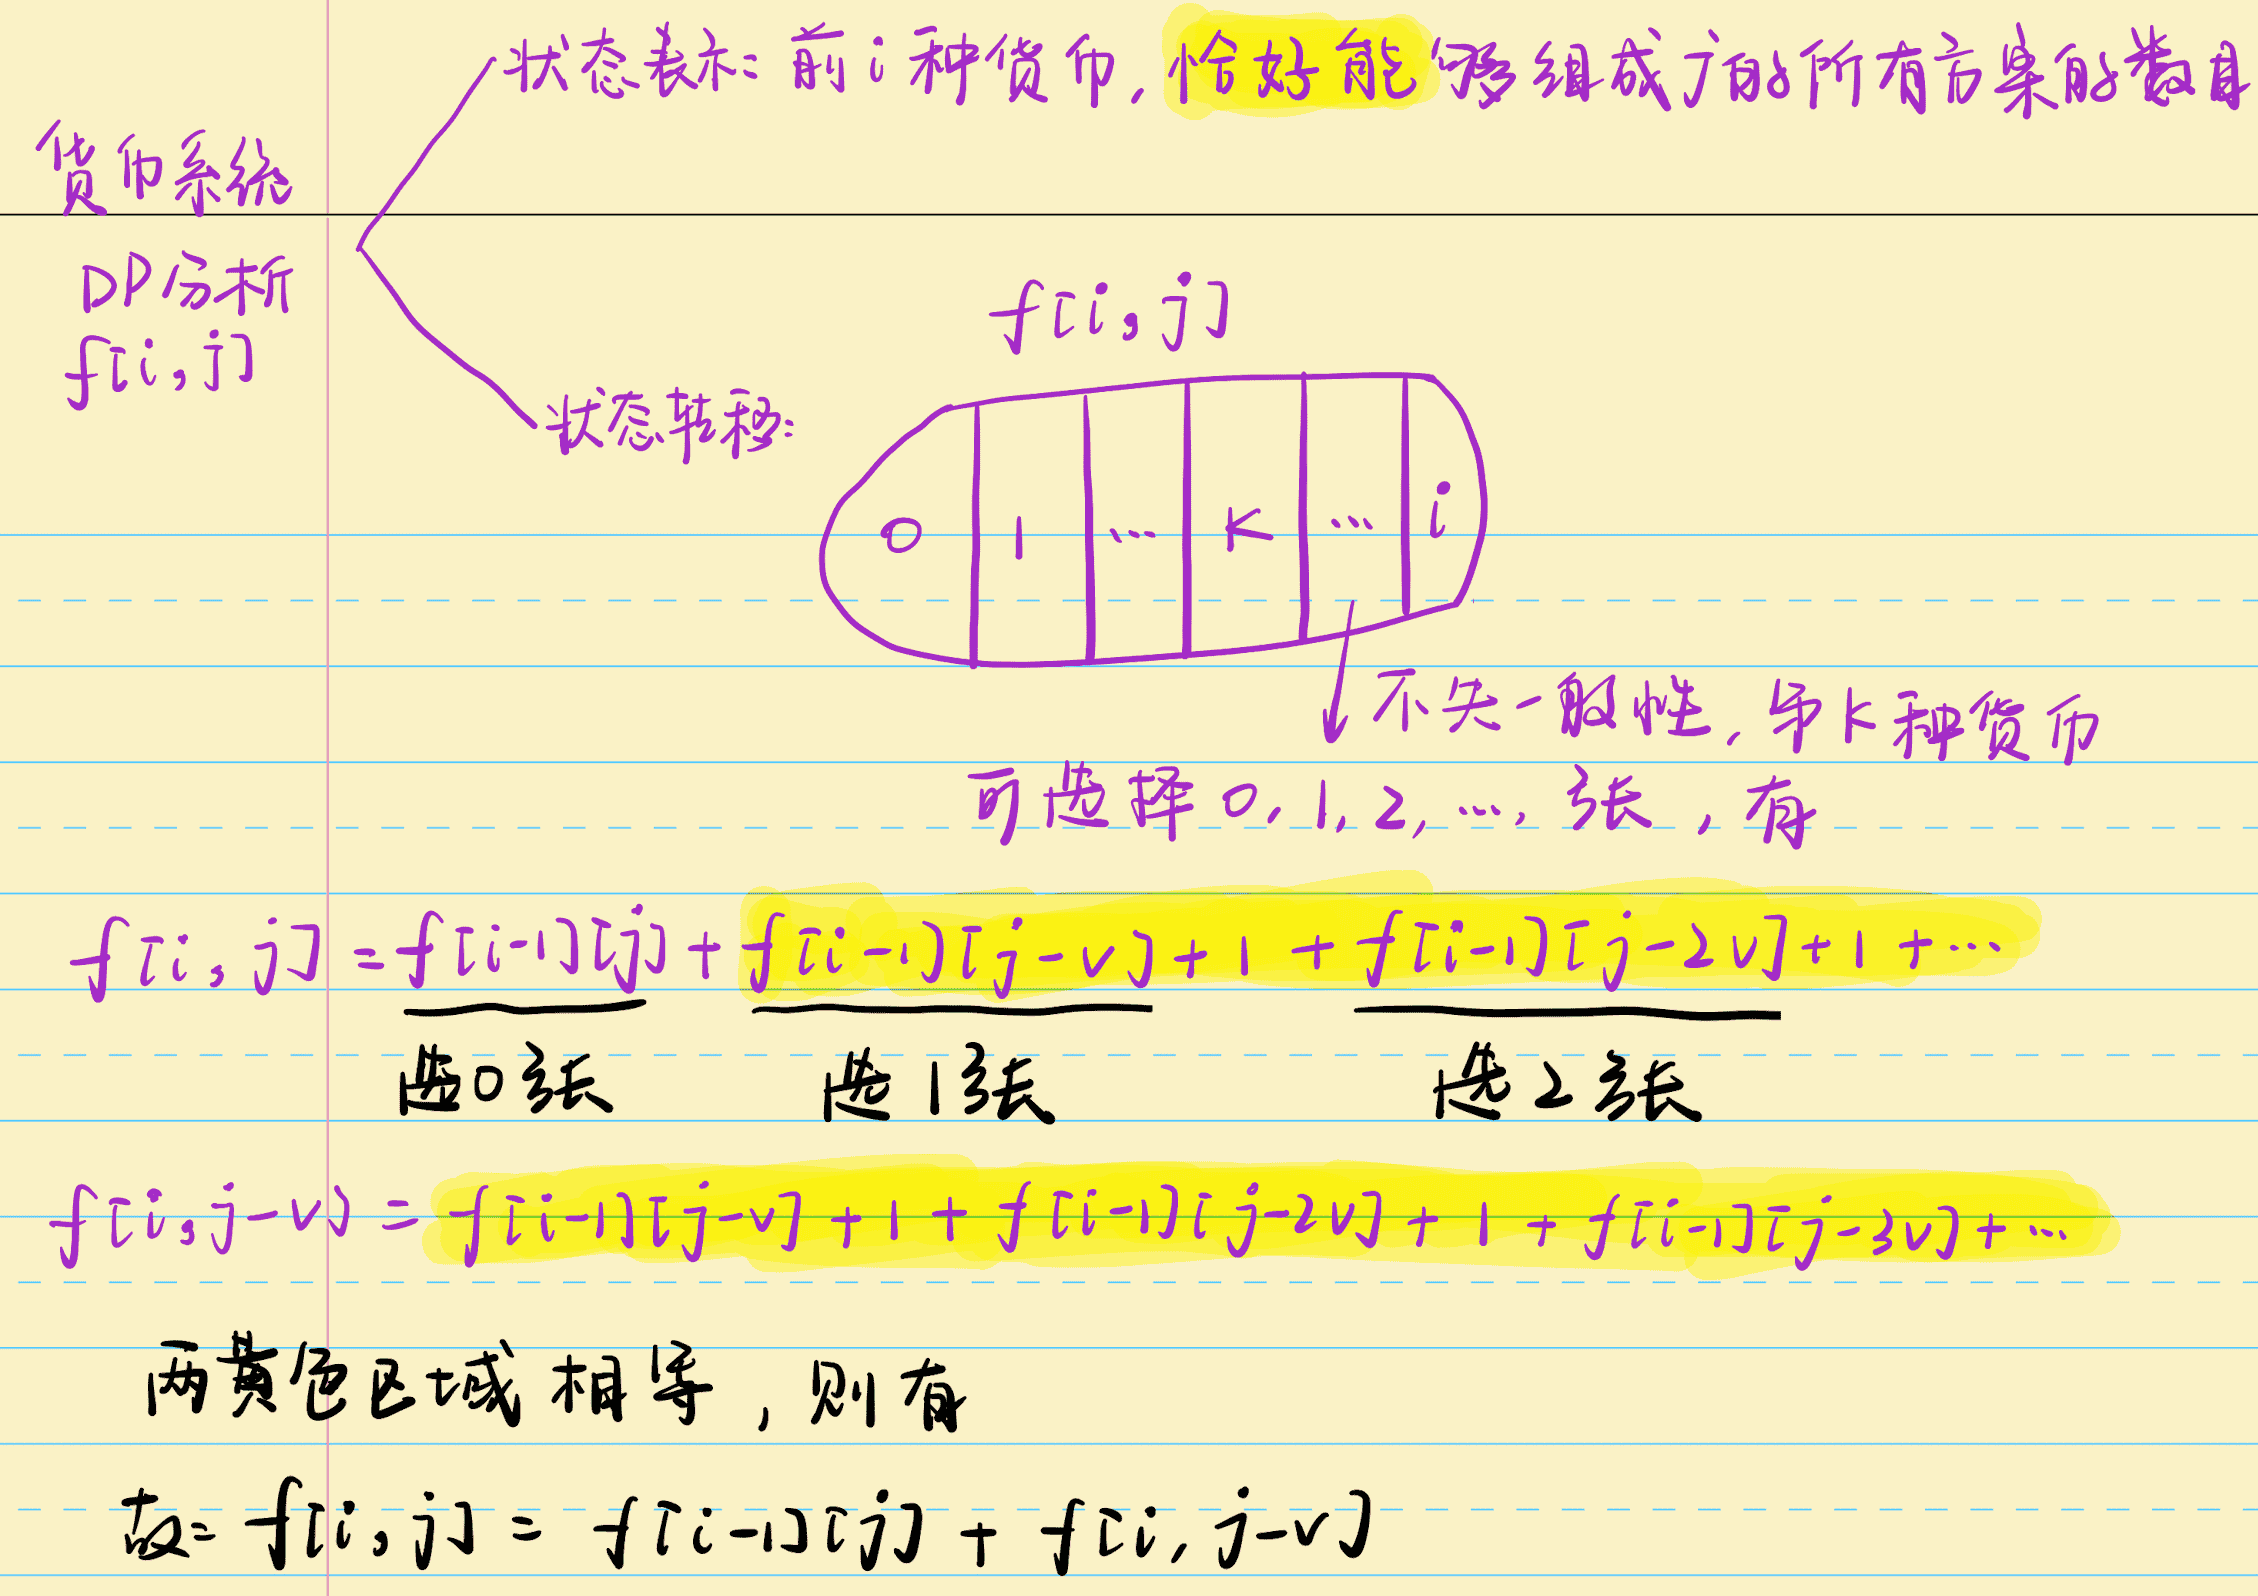 状态表示：前i种货币，恰好能够组成j的所有方案的数目
货币系统
DP分析
f[i,j]
状态转移：
f[i,j]
0 1 ... K ... i
不失一般性，第k种货币
可选择0,1,2,...,张，有
f[i,j]=f[i-1][j]+f[i-1][j-v]+1+f[i-1][j-2v]+1+...
选0张 选1张 选2张
f[i,j-v]=f[i-1][j-v]+1+f[i-1][j-2v]+1+f[i-1][j-3v]+...
两黄色区域相等，则有
故：f[i,j]=f[i-1][j]+f[i,j-v]